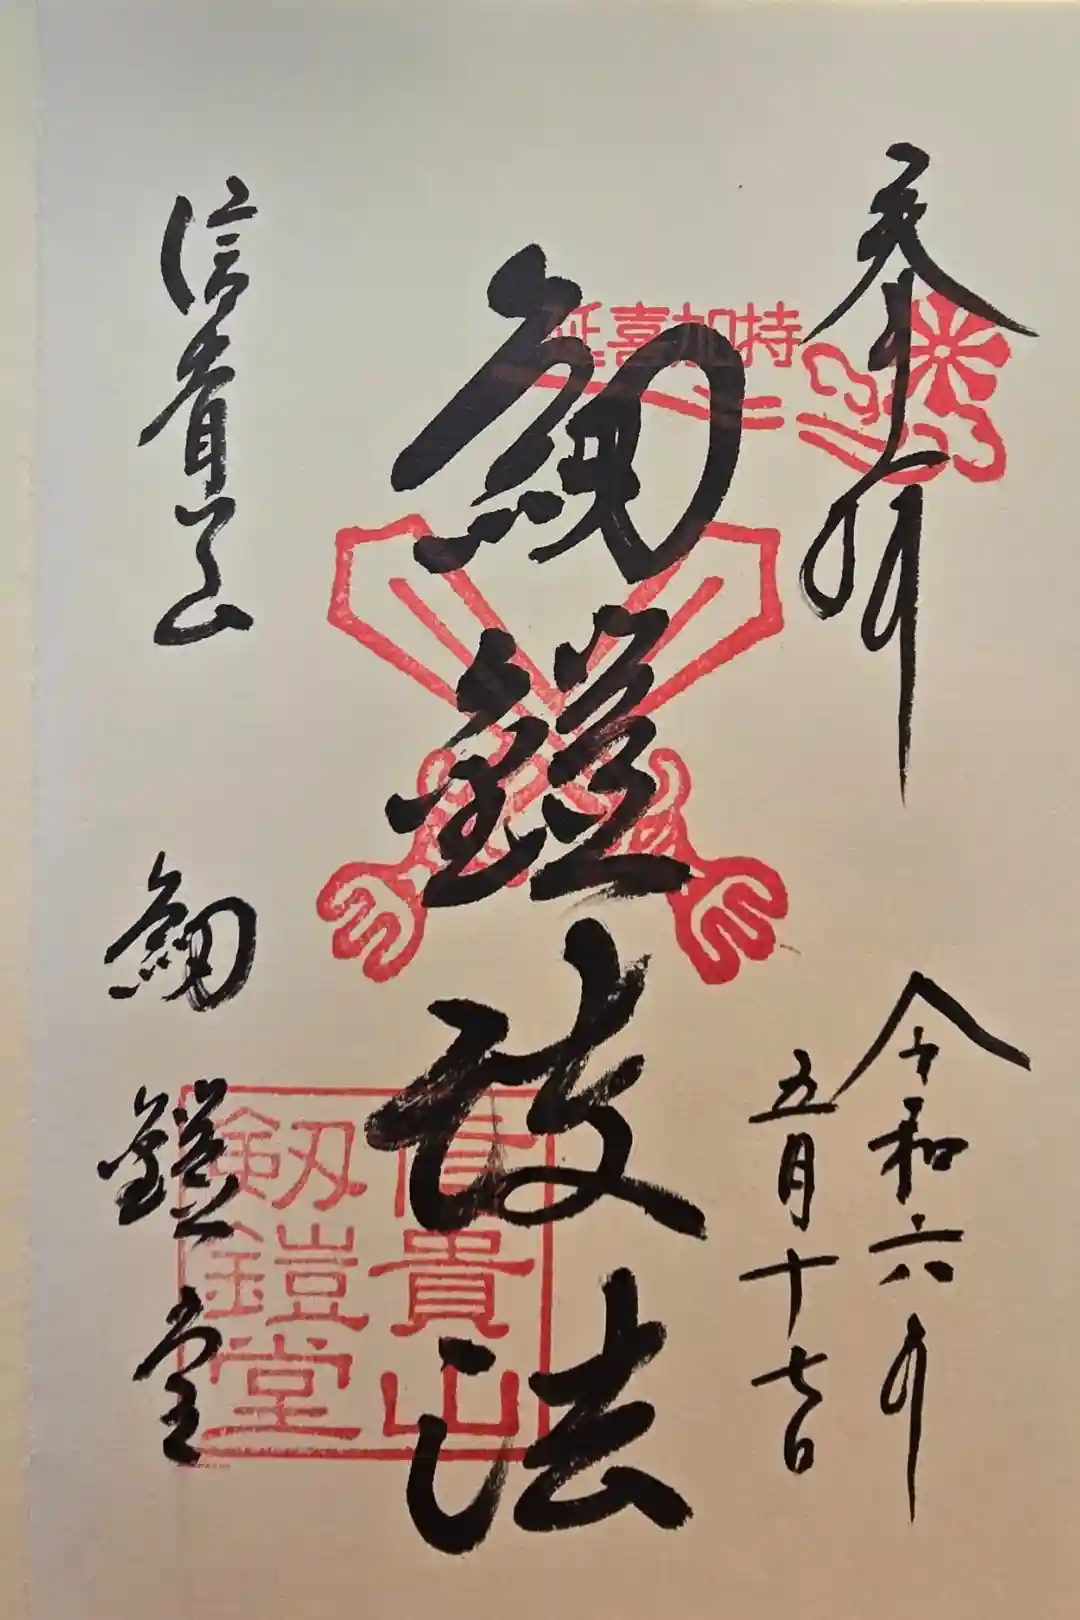 奉拝
令和六年
五月十七日
延喜加持
劔鎧護法
信貴山
劔鎧堂
信貴山
劔鎧堂